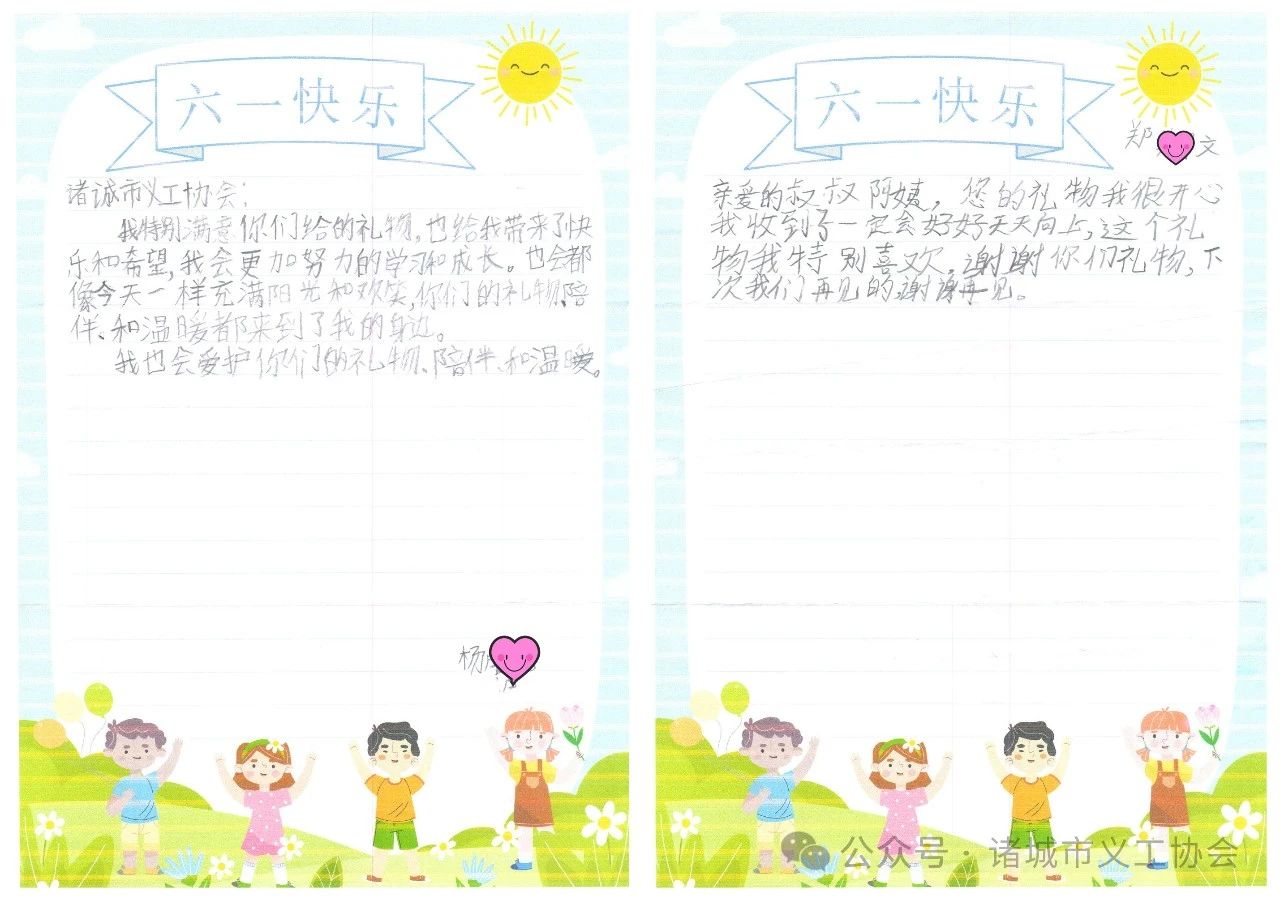 六一快乐
诸诚市义工协会：
我特别满意你们给的礼物，也给我带来了快
乐和希望，我会更加努力的学习和成长。也会都
像今天一样充满阳光和欢笑，你们的礼物、陪
伴、和温暖都来到了我的身边。
我也会爱护你们的礼物、陪伴、和温暖。
杨
六一快乐
郑 文
亲爱的叔叔阿姨，您的礼物我很开心
我收到了一定会好好天天向上，这个礼
物我特别喜欢，谢谢你们礼物，下
次我们再见的谢谢再见。
公众号·诸城市义工协会